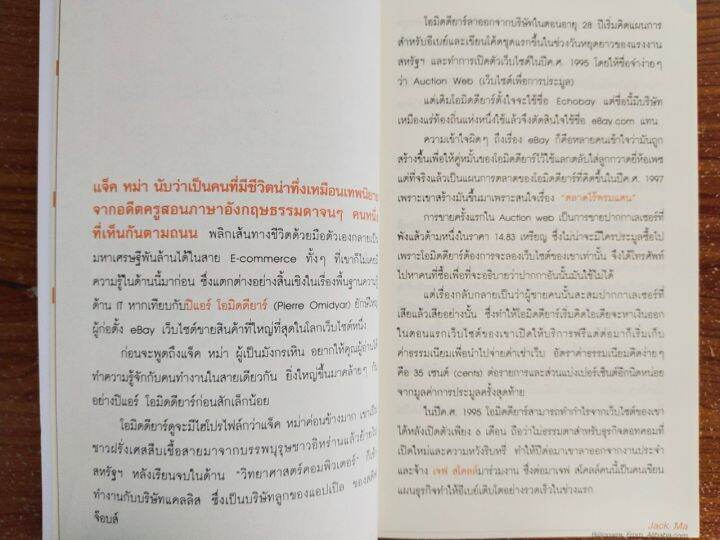 แจ็ค หม่า นับว่าเป็นคนที่มีชีวิตน่าทึ่งเหมือนเทพนิยาย
จากอดีตครูสอนภาษาอังกฤษธรรมดาจนๆ คนหนึ่ง
ที่เห็นกันตามถนน พลิกเส้นทางชีวิตด้วยมือตัวเองกลายเป็น
มหาเศรษฐีพันล้านได้ในสาย E-commerce ทั้งๆ ที่เขาก็ไม่เคยมี
ความรู้ในด้านนี้มาก่อน ซึ่งแตกต่างอย่างสิ้นเชิงในเรื่องพื้นฐานความรู้
ด้าน IT หากเทียบกับปิแอร์ โอมิดดียาร์ (Pierre Omidyar) ยักษ์ใหญ่
ผู้ก่อตั้ง eBay เว็บไซต์ขายสินค้าที่ใหญ่ที่สุดในโลกเว็บไซต์หนึ่ง
ก่อนจะพูดถึงแจ็ค หม่า ผู้เป็นมังกรเหิน อยากให้คุณผู้อ่านได้
ทำความรู้จักกับคนทำงานในสายเดียวกัน ยิ่งใหญ่ขึ้นมาคล้ายๆ กัน
อย่างปิแอร์ โอมิดดียาร์ก่อนสักเล็กน้อย
โอมิดดียาร์ดูจะมีไฮโปรไฟล์กว่าแจ็ค หม่าค่อนข้างมาก เขาเป็น
ชาวฝรั่งเศสสืบเชื้อสายมาจากบรรพบุรุษชาวอิหร่านแล้วย้าย
สหรัฐฯ หลังเรียนจบในด้าน "วิทยาศาสตร์คอมพิวเตอร์" ก็เข้า
ทำงานกับบริษัทแคลลิส ซึ่งเป็นบริษัทลูกของแอปเปิล ของสตีฟ
จ็อบส์
โอมิดดียาร์ลาออกจากบริษัทในตอนอายุ 28 ปีเริ่มคิดแผนการ
สำหรับอีเบย์และเขียนโค้ดชุดแรกขึ้นในช่วงวันหยุดยาวของแรงงาน
สหรัฐฯ และทำการเปิดตัวเว็บไซต์ในปีค.ศ. 1995 โดยให้ชื่อจำง่ายๆ
ว่า Auction Web (เว็บไซต์เพื่อการประมูล)
แต่เดิมโอมิดดียาร์ตั้งใจจะใช้ชื่อ Echobay แต่ชื่อนี้มีบริษัท
เหมืองแร่ท้องถิ่นแห่งหนึ่งใช้แล้วจึงตัดสินใจใช้ชื่อ eBay.com แทน
ความเข้าใจผิดๆ ถึงเรื่อง eBay ก็คือหลายคนเข้าใจว่ามันถูก
สร้างขึ้นเพื่อให้คู่หมั้นของโอมิดดียาร์ไว้ใช้แลกตลับใส่ลูกกวาดยี่ห้อเพซ
แต่ที่จริงแล้วเป็นแผนการตลาดของโอมิดดียาร์ที่คิดขึ้นในปีค.ศ. 1997
เพราะเขาสร้างมันขึ้นมาเพราะสนใจเรื่อง "ตลาดไร้พรมแดน"
การขายครั้งแรกใน Auction web เป็นการขายปากกาเลเซอร์ที่
พังแล้วด้ามหนึ่งในราคา 14.83 เหรียญ ซึ่งไม่น่าจะมีใครประมูลซื้อไป
เพราะโอมิดดียาร์ต้องการจะลองเว็บไซต์ของเขาเท่านั้น จึงได้โทรศัพท์
ไปหาคนที่ซื้อเพื่อที่จะอธิบายว่าปากกาอันนั้นมันใช้ไม่ได้
แต่เรื่องกลับกลายเป็นว่าผู้ขายคนนั้นสะสมปากกาเลเซอร์ที่
เสียแล้วเสียอย่างนั้น ซึ่งทำให้โอมิดดียาร์เริ่มคิดไอเดียจะหาเงินออก
ในตอนแรกเว็บไซต์ของเขาเปิดให้บริการฟรีแต่ต่อมาก็เริ่มเก็บ
ค่าธรรมเนียมเพื่อนำไปจ่ายค่าเช่าเว็บ อัตราค่าธรรมเนียมคิดง่ายๆ
คือ 35 เซนต์ (cents) ต่อรายการและส่วนแบ่งเปอร์เซ็นต์อีกนิดหน่อย
จากมูลค่าการประมูลครั้งสุดท้าย
ในปีค.ศ. 1995 โอมิดดียาร์สามารถทำกำไรจากเว็บไซต์ของเขา
ได้หลังเปิดตัวเพียง 6 เดือน ถือว่าไม่ธรรมดาสำหรับธุรกิจดอทคอมที่
เปิดใหม่และความหวังริบหรี่ ทำให้ปีต่อมาเขาลาออกจากงานประจำ
และจ้าง เจฟ สโคลล์มาร่วมงาน ซึ่งต่อมาเจฟ สโคลล์คนนี้เป็นคนเขียน
แผนธุรกิจทำให้อีเบย์เติบโตอย่างรวดเร็วในช่วงแรก
Jack Ma
Billionaire from Alibaba.com